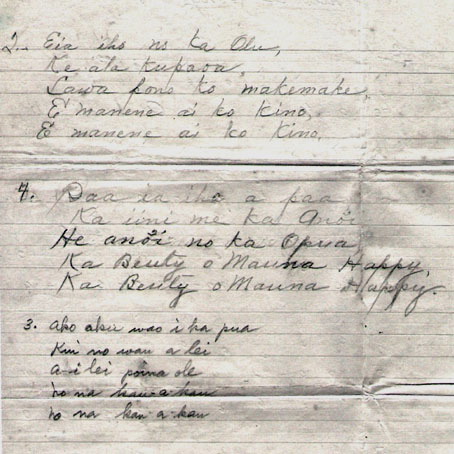 2. Eia iho no ka Olu,
Ke ala kupaoa,
Lawa pono ko makemake,
E manene ai ko kino,
E manene ai ko kino.
4. Paa ia iho a paa
Ka iini me ka Anoi
He anoi no ka Opua
Ka Beuty o Mauna Happy,
Ka Beuty o Mauna Happy.
3. Ako aku wau i ka pua
Kui no wau a lei
a i lei poina ole
no na kau a kau
no na kau a kau